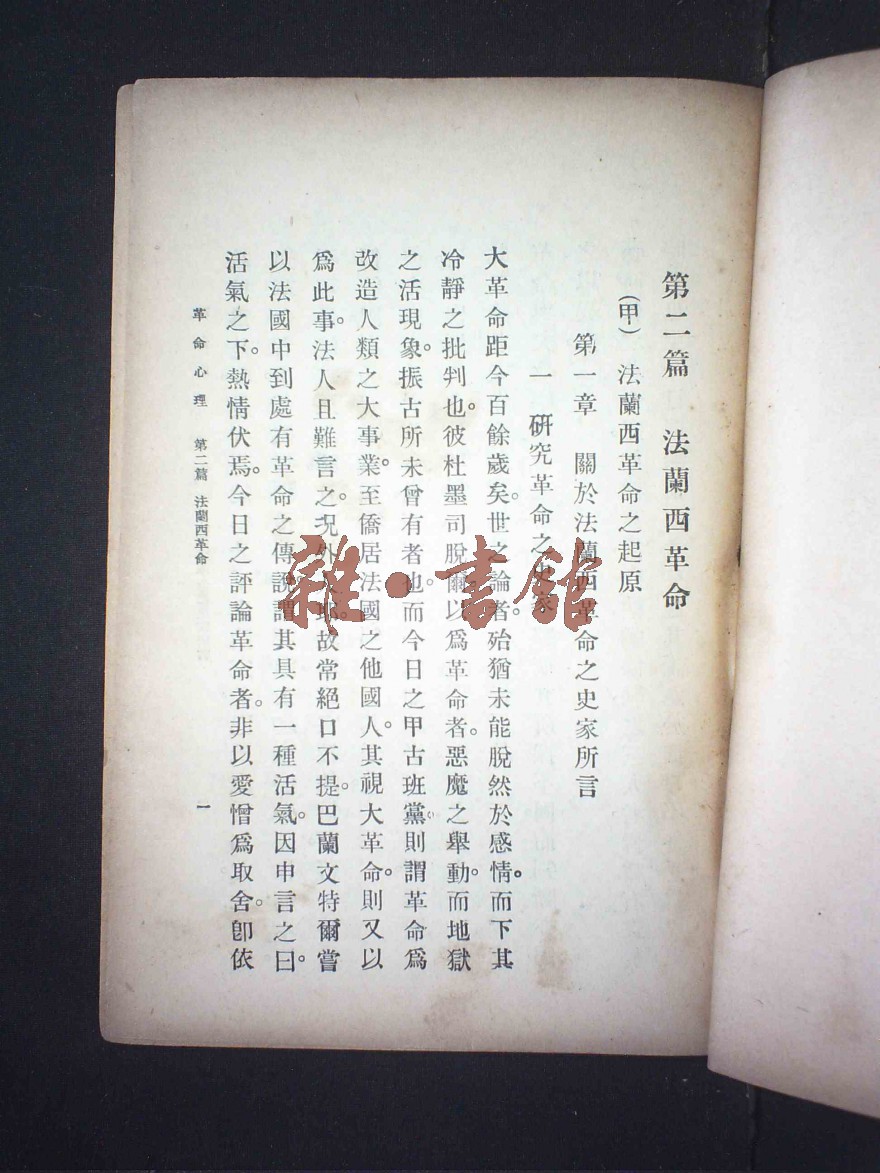 第二篇 法蘭西革命
(甲) 法蘭西革命之起原
第一章 關於法蘭西革命之史家所言
一 研究革命之史家
大革命距今百餘歲矣。世之論者。殆猶未能脫然於感情。而下其
冷靜之批判也。彼杜墨司脫爾以爲革命者。惡魔之舉動。而地獄
之活現象。振古所未曾有者也。而今日之甲古班黨。則謂革命爲
改造人類之大事業。至僑居法國之他國人。其視大革命。則又以
爲此事。法人且難言之。况外人耶。故常絕口不提。巴蘭文特爾嘗
以法國中到處有革命之傳說。謂其具有一種活氣。因申言之曰。
活氣之下。熱情伏焉。今日之評論革命者。非以愛憎爲取舍。卽依
革命心理 第二篇 法蘭西革命
一
雜·書館